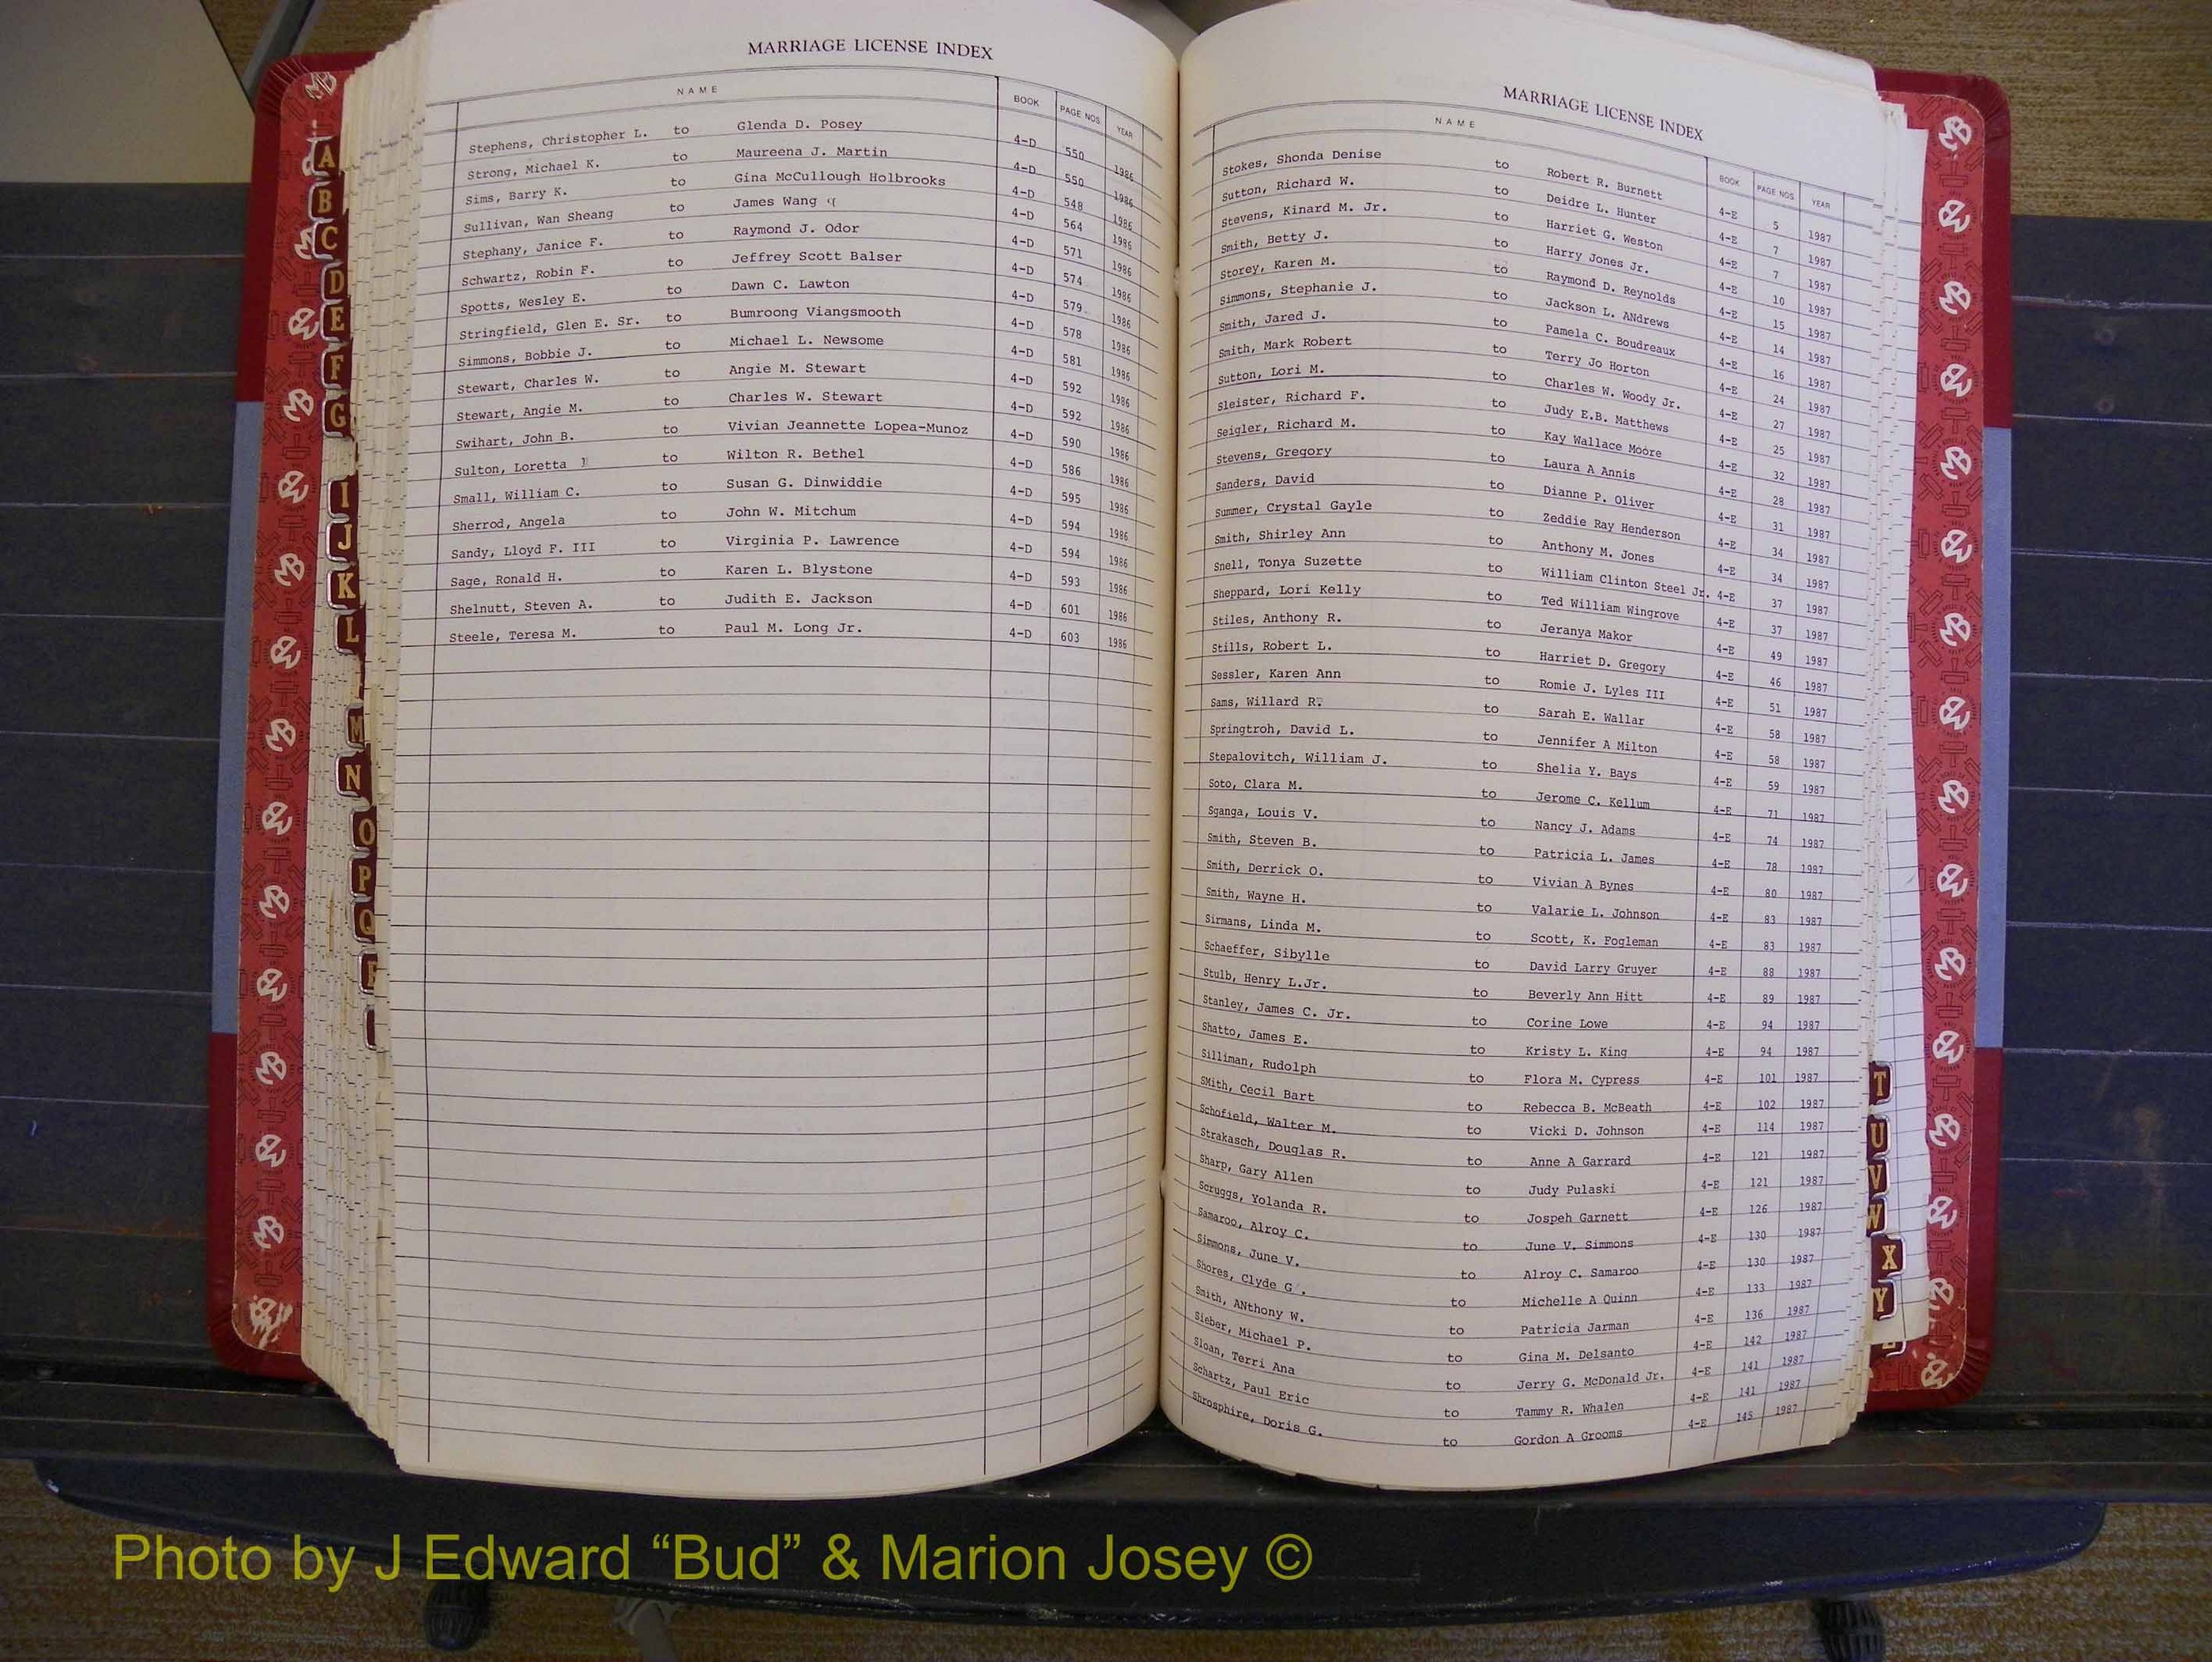 MARRIAGE LICENSE INDEX
NAME BOOK PAGE NOS. YEAR
Stephens, Christopher L. to Glenda D. Posey 4-D 550 1986
Strong, Michael K. to Maureena J. Martin 4-D 550 1986
Sims, Barry K. to Gina McCullough Holbrooks 4-D 548 1986
Sullivan, Wan Sheang to James Wang 4-D 564 1986
Stephany, Janice F. to Raymond J. Odor 4-D 571 1986
Schwartz, Robin F. to Jeffrey Scott Balser 4-D 574 1986
Spotts, Wesley E. to Dawn C. Lawton 4-D 579 1986
Stringfield, Glen E. Sr. to Bumroong Viangsmooth 4-D 578 1986
Simmons, Bobbie J. to Michael L. Newsome 4-D 581 1986
Stewart, Charles W. to Angie M. Stewart 4-D 592 1986
Stewart, Angie M. to Charles W. Stewart 4-D 592 1986
Swihart, John B. to Vivian Jeannette Lopea-Munoz 4-D 590 1986
Sulton, Loretta to Wilton R. Bethel 4-D 586 1986
Small, William C. to Susan G. Dinwiddie 4-D 595 1986
Sherrod, Angela to John W. Mitchum 4-D 594 1986
Sandy, Lloyd F. III to Virginia P. Lawrence 4-D 594 1986
Sage, Ronald H. to Karen L. Blystone 4-D 593 1986
Shelnutt, Steven A. to Judith E. Jackson 4-D 601 1986
Steele, Teresa M. to Paul M. Long Jr. 4-D 603 1986
A
B
C
D
E
F
G
I
J
K
L
M
N
O
P
Q
MARRIAGE LICENSE INDEX
NAME BOOK PAGE NOS. YEAR
Stokes, Shonda Denise to Robert R. Burnett 4-E 5 1987
Sutton, Richard W. to Deidre L. Hunter 4-E 7 1987
Stevens, Kinard M. Jr. to Harriet G. Weston 4-E 7 1987
Smith, Betty J. to Harry Jones Jr. 4-E 10 1987
Storey, Karen M. to Raymond D. Reynolds 4-E 15 1987
Simmons, Stephanie J. to Jackson L. ANdrews 4-E 14 1987
Smith, Jared J. to Pamela C. Boudreaux 4-E 16 1987
Smith, Mark Robert to Terry Jo Horton 4-E 24 1987
Sutton, Lori M. to Charles W. Woody Jr. 4-E 27 1987
Sleister, Richard F. to Judy E.B. Matthews 4-E 25 1987
Seigler, Richard M. to Kay Wallace Moore 4-E 32 1987
Stevens, Gregory to Laura A Annis 4-E 28 1987
Sanders, David to Dianne P. Oliver 4-E 31 1987
Summer, Crystal Gayle to Zeddie Ray Henderson 4-E 34 1987
Smith, Shirley Ann to Anthony M. Jones 4-E 34 1987
Snell, Tonya Suzette to William Clinton Steel Jr. 4-E 37 1987
Sheppard, Lori Kelly to Ted William Wingrove 4-E 37 1987
Stiles, Anthony R. to Jeranya Makor 4-E 49 1987
Stills, Robert L. to Harriet D. Gregory 4-E 46 1987
Sessler, Karen Ann to Romie J. Lyles III 4-E 51 1987
Sams, Willard R. to Sarah E. Wallar 4-E 58 1987
Springtroh, David L. to Jennifer A Milton 4-E 58 1987
Stepalovitch, William J. to Shelia Y. Bays 4-E 59 1987
Soto, Clara M. to Jerome C. Kellum 4-E 71 1987
Sganga, Louis V. to Nancy J. Adams 4-E 74 1987
Smith, Steven B. to Patricia L. James 4-E 78 1987
Smith, Derrick O. to Vivian A Bynes 4-E 80 1987
Smith, Wayne H. to Valarie L. Johnson 4-E 83 1987
Sirmans, Linda M. to Scott, K. Fogleman 4-E 83 1987
Schaeffer, Sibylle to David Larry Gruyer 4-E 88 1987
Stulb, Henry L.Jr. to Beverly Ann Hitt 4-E 89 1987
Stanley, James C. Jr. to Corine Lowe 4-E 94 1987
Shatto, James E. to Kristy L. King 4-E 94 1987
Silliman, Rudolph to Flora M. Cypress 4-E 101 1987
SMith, Cecil Bart to Rebecca B. McBeath 4-E 102 1987
Schofield, Walter M. to Vicki D. Johnson 4-E 114 1987
Strakasch, Douglas R. to Anne A Garrard 4-E 121 1987
Sharp, Gary Allen to Judy Pulaski 4-E 121 1987
Scruggs, Yolanda R. to Jospeh Garnett 4-E 126 1987
Samaroo, Alroy C. to June V. Simmons 4-E 130 1987
Simmons, June V. to Alroy C. Samaroo 4-E 130 1987
Shores, Clyde G. to Michelle A Quinn 4-E 133 1987
Smith, ANthony W. to Patricia Jarman 4-E 136 1987
Sieber, Michael P. to Gina M. Delsanto 4-E 142 1987
Sloan, Terri Ana to Jerry G. McDonald Jr. 4-E 141 1987
Schartz, Paul Eric to Tammy R. Whalen 4-E 141 1987
Shrosphire, Doris G. to Gordon A Grooms 4-E 145 1987
T
U
V
W
X
Y
Photo by J Edward “Bud” & Marion Josey ©